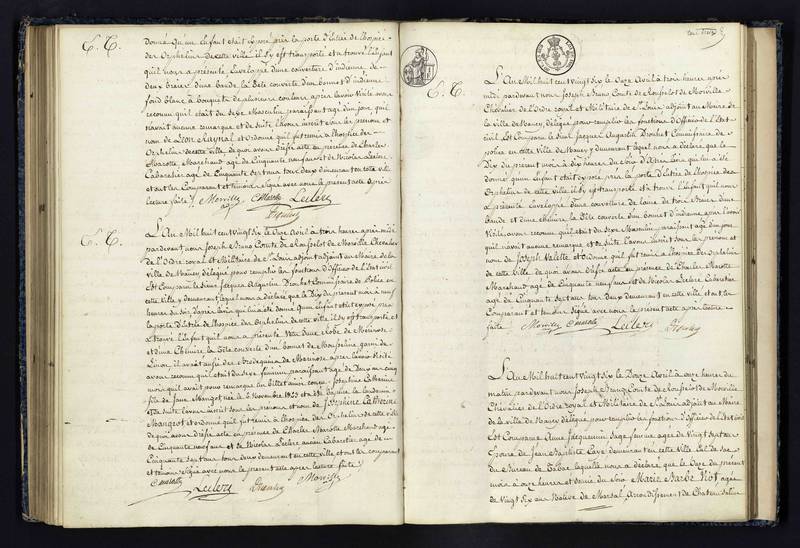 E. T.
donné qu'un Enfant était exposé près la porte d'Entrée de l'hospice
des Orphelins de cette ville, il s'y est transporté et a trouvé l'enfant
qu'il nous a présenté, Enveloppé d'une couverture d'indienne, de
une bande, la tête couverte d'un bonnet d'indienne
fond blanc à bouquets de plusieurs couleurs, après l'avoir visité avons
reconnu qu'il était du sexe Masculin, paraissant agé d'un jour, qu'il
n'avait aucune remarque et de suite l'avons inscrit sous les prénom et
nom de Léon Raynal et ordonné qu'il fut remis à l'hospice des
Orphelins de cette ville, de quoi avons dressé acte en présence de Charles
Marotte Marchand agé de Cinquante neuf ans et de Nicolas Leclerc
Cabaretier agé de Cinquante sept ans tous deux demeurant en cette ville
et ont les Comparant et témoins signé avec nous le présent acte après
lecture faite /. Morville C Marotte Leclerc
adj
E. T.
L'An Mil huit cent vingt six le Onze Avril à trois heures après midi
pardevant nous Joseph Bruno Comte de Rousselot de Morville Chevalier
de l'Ordre royal et Militaire de St Louis adjoint au Maire de la
ville de Nancy, délégué pour remplir les fonctions d'Officier de l'Etat civil
Est Comparu le Sieur Jacques Augustin Drouhet Commissaire de Police en
cette ville y demeurant lequel nous a déclaré que le Dix du présent mois à neuf
heures du soir d'après l'avis qui lui a été donné qu'un Enfant était exposé près
la porte d'Entrée de l'hospice des Orphelins de cette ville, il s'y est transporté, et
a trouvé l'Enfant qu'il nous a présenté Vêtu d'une Robe de Mérinos
et d'une Chemise la tête couverte d'un bonnet de Mousseline garni de
il avait aussi des Brodequins de Mérinos, après l'avoir visité
avons reconnu qu'il était du sexe féminin paraissant agé de Deux ans cinq
mois qu'il avait pour remarque un billet ainsi conçu : Josephine Catherine
fille de Jeanne Mangeot née le 6 Novembre 1823 et été baptisé le lendemain =
De suite l'avons inscrit sous les prénoms et nom de Josephine Catherine
Mangeot et ordonné qu'il fut remis à l'hospice des Orphelins de cette ville
de quoi avons dressé acte en présence de Charles Marotte Marchand agé
de Cinquante neuf ans et de Nicolas Leclerc ancien Cabaretier agé de
Cinquante sept ans tous deux demeurant en cette ville et ont les comparant
et témoins signé avec nous le présent acte après lecture faite /.
C Marotte Leclerc Drouhet Morville
E. T.
L'An Mil huit cent vingt six le Onze Avril à trois heures après
midi pardevant nous Joseph Bruno Comte de Rousselot de Morville
Chevalier de l'Ordre royal et Militaire de St Louis adjoint au Maire de
la ville de Nancy, délégué pour remplir les fonctions d'Officier de l'Etat
civil Est Comparu le Sieur Jacques Augustin Drouhet Commissaire de
police en cette ville de Nancy y demeurant lequel nous a déclaré que le
Dix du présent mois à dix heures du Soir d'après l'avis qui lui a été
donné qu'un Enfant était exposé près la porte d'Entrée de l'hospice des
Orphelins de cette ville, il s'y est transporté et a trouvé l'Enfant qu'il nous
a présenté Enveloppé d'une couverture de laine de trois d'une
bande et d'une chemise, la tête couverte d'un bonnet d'indienne, après l'avoir
Visité, avons reconnu qu'il était du sexe Masculin, paraissant agé d'un jour
qu'il n'avait aucune remarque et de suite l'avons inscrit sous les prénom et
nom de Joseph Valette et ordonné qu'il fut remis à l'hospice des Orphelins
de cette ville de quoi avons dressé acte en présence de Charles Marotte
Marchand agé de Cinquante neuf ans et de Nicolas Leclerc Cabaretier
agé de Cinquante sept ans tous deux demeurant en cette ville et ont les
Comparant et témoins signé avec nous le présent acte après lecture
faite /. Morville C Marotte Leclerc Drouhet
L'An Mil huit cent vingt six le Douze Avril à onze heures du
matin pardevant nous Joseph Bruno Comte de Rousselot de Morville
Chevalier de l'Ordre royal et Militaire de St Louis adjoint au Maire
de la ville de Nancy, délégué pour remplir les fonctions d'Officier de l'Etat civil
Est Comparue Anne Jacquemin Sage femme agée de Vingt sept ans
Epouse de Jean Baptiste demeurant en cette Ville
du Bureau de Tabac laquelle nous a déclaré que le Onze du présent
mois à onze heures et demie du Soir Marie Barbe agée
de Vingt six ans Native de Marsal, Arrondissement de Chateau Salins